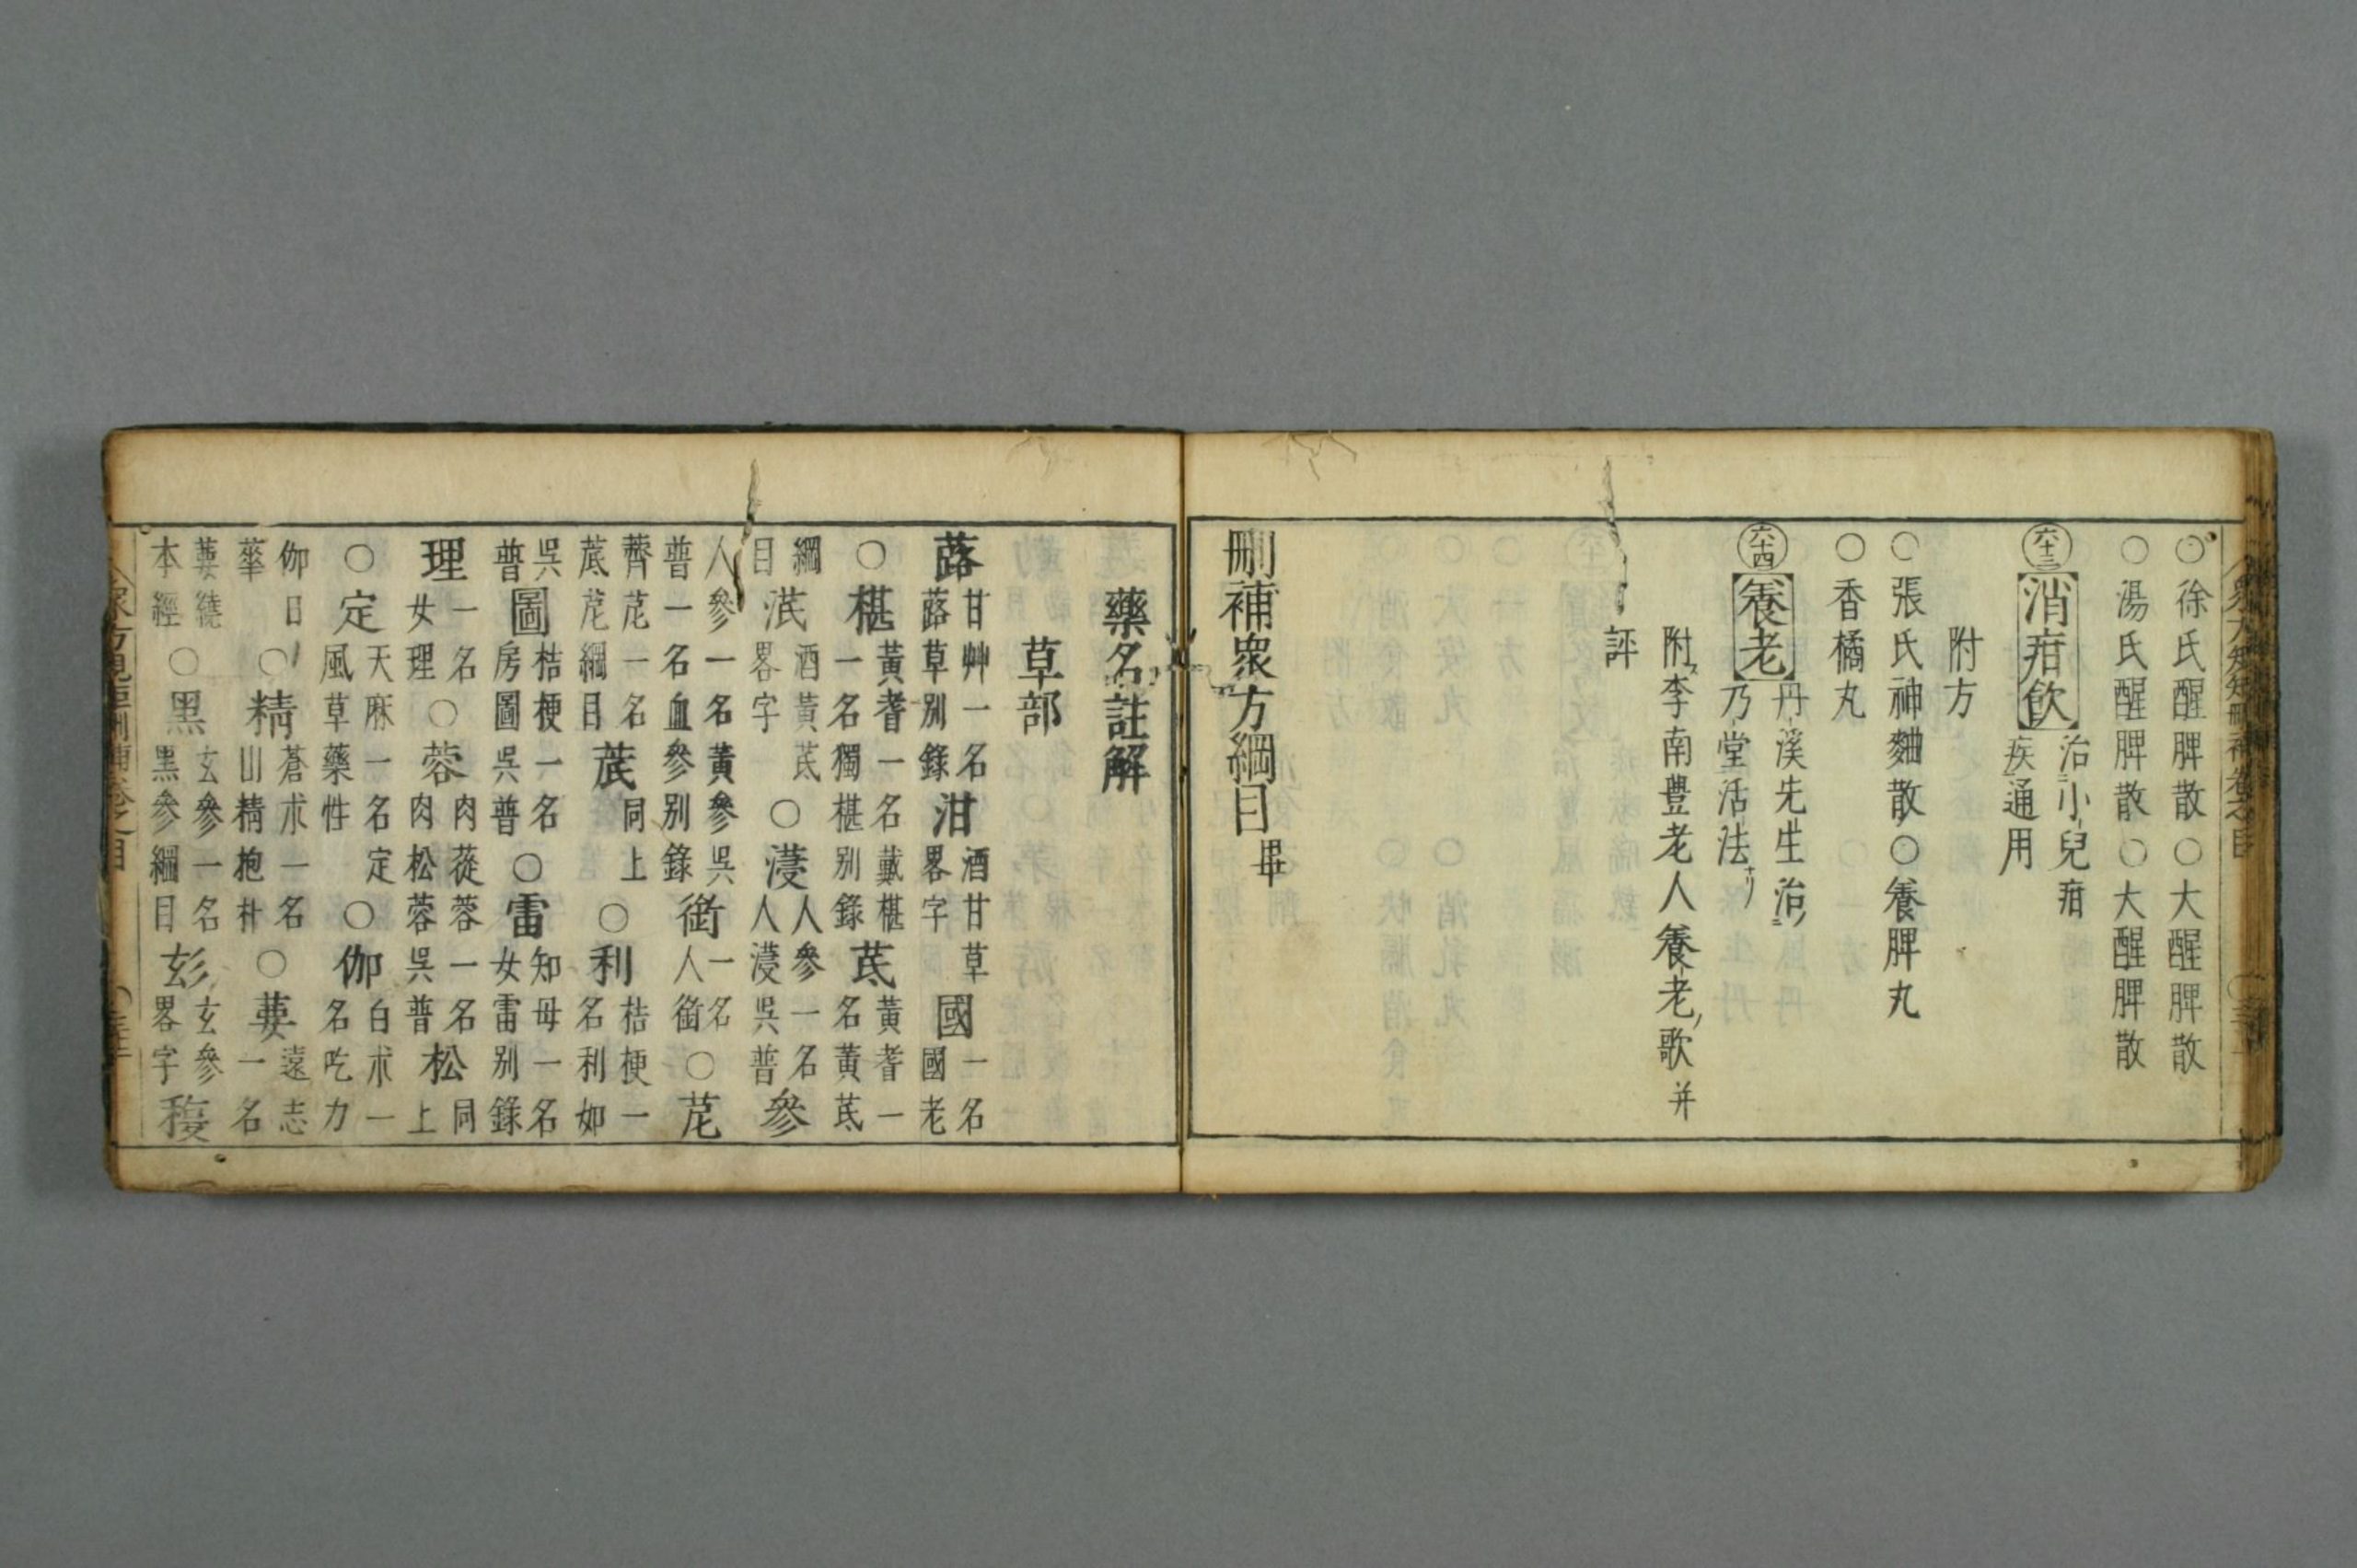 ○徐氏醒脾散○大醒脾散
○湯氏醒脾散○大醒脾散
六十三 消疳飲 治小兒疳
疾通用
附方
○張氏神麯散○養脾丸
○香橘丸
六十四 養老 丹溪先生治
乃堂活法ナリ
附李南豐老人養老歌并
評
刪補衆方綱目畢
藥名註解
草部
蕗 甘艸一名
蕗草別錄 泔 酒甘草
畧字 國 一名
國老
○椹 黃耆一名戴椹
一名獨椹別錄 芪 黃耆一
名黃芪
綱
目 泯 酒黃芪
畧字 ○蓡 人參一名
人蓡吳普 參
人參一名黃參吳
普一名血參別錄 銜 一名
人銜 ○苨
薺苨一名
菧苨綱目 菧 同上 ○利 桔梗一
名利如
吳
普 圖 桔梗一名
房圖吳普 ○雷 知母一名
女雷別錄
理 一名
女理 ○蓉 肉蓯蓉一名
肉松蓉吳普 松 同
上
○定 天麻一名定
風草藥性 ○伽 白朮一
名吃力
伽日
華 ○精 蒼朮一名
山精抱朴 ○葽 遠志
一名
葽繞
本經 ○黑 玄參一名
黑參綱目 玄 玄參
畧字